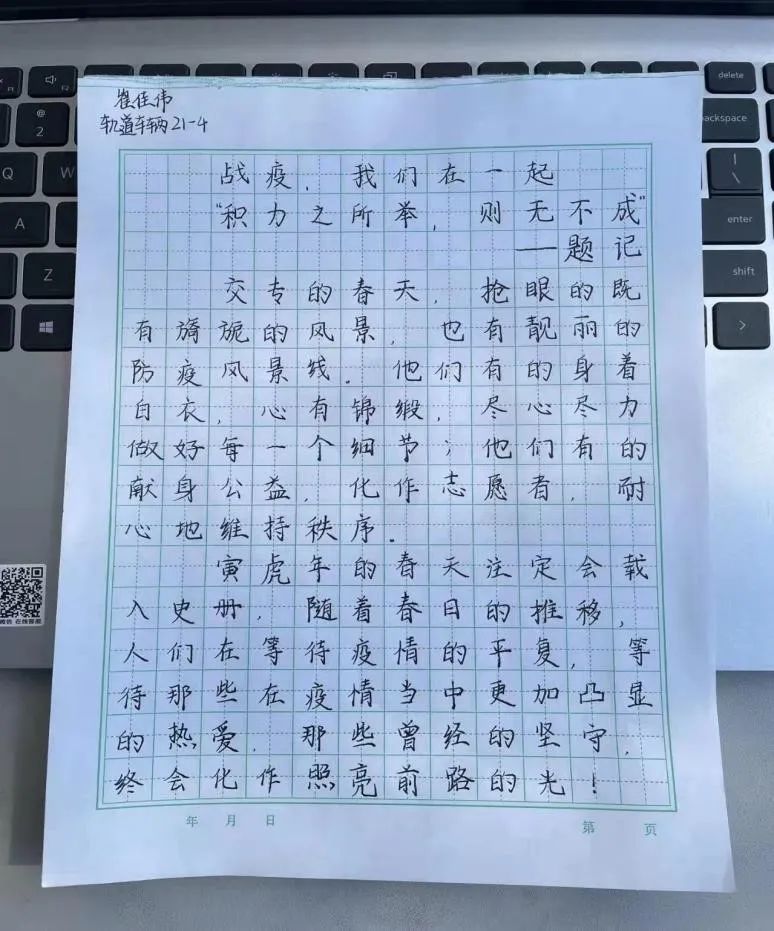 崔佳伟
轨道车辆21-4
战疫，我们在一起
“积力之所举，则无不成”
——题记
交专的春天，抢眼的既
有旖旎的风景，也有靓丽的
防疫风景线．他们有的身着
白衣，心有锦缎，尽心尽力
做好每一个细节；他们有的
献身公益，化作志愿者，耐
心地维持秩序．
寅虎年的春天注定会载
入史册，随着春日的推移，
人们在等待疫情的平复，等
待那些在疫情当中更加凸显
的热爱，那些曾经的坚守，
终会化作照亮前路的光！
年 月 日
第 页
delete
backspace
enter
shift
@
2
Q
W
A
Z
F2
|
\
>
微信 在线客服